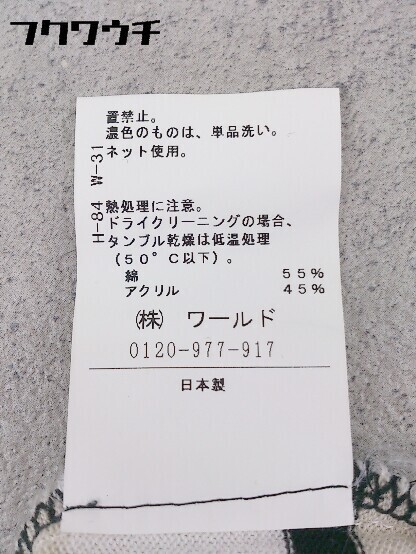 フクワウチ
置禁止。
濃色のものは、単品洗い。
ネット使用。
熱処理に注意。
ドライクリーニングの場合、
タンブル乾燥は低温処理
（50°C以下）。
綿 55%
アクリル 45%
H-84 W-31
㈱ ワールド
0120-977-917
日本製